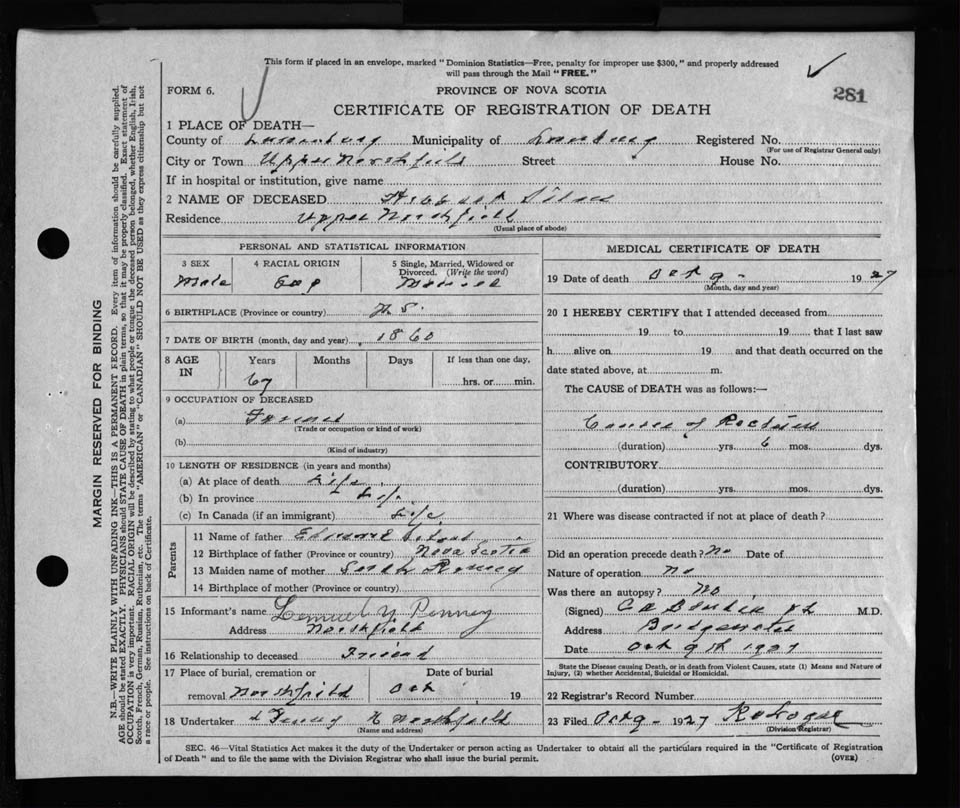 This form if placed in an envelope, marked "Dominion Statistics—Free, penalty for improper use $300," and properly addressed
will pass through the Mail "FREE."
281
FORM 6.
PROVINCE OF NOVA SCOTIA
CERTIFICATE OF REGISTRATION OF DEATH
1 PLACE OF DEATH—
County of Lunenburg Municipality of Lunenburg Registered No.
(For use of Registrar General only)
City or Town Upper Northfield Street House No.
If in hospital or institution, give name
2 NAME OF DECEASED
Residence Upper Northfield
(Usual place of abode)
PERSONAL AND STATISTICAL INFORMATION
3 SEX 4 RACIAL ORIGIN 5 Single, Married, Widowed or Divorced. (Write the word)
Male Married
6 BIRTHPLACE (Province or country) N. S.
7 DATE OF BIRTH (month, day and year) 1860
8 AGE IN Years Months Days If less than one day,
67 hrs. or min.
9 OCCUPATION OF DECEASED
(a) Farmer
(Trade or occupation or kind of work)
(b)
(Kind of industry)
10 LENGTH OF RESIDENCE (in years and months)
(a) At place of death Life
(b) In province Life
(c) In Canada (if an immigrant) Life
Parents
11 Name of father Edward
12 Birthplace of father (Province or country) Nova Scotia
13 Maiden name of mother Sarah
14 Birthplace of mother (Province or country)
15 Informant's name Lemuel Penney
Address Northfield
16 Relationship to deceased Friend
17 Place of burial, cremation or Date of burial
removal Northfield Oct 19
18 Undertaker Northfield
(Name and address)
MEDICAL CERTIFICATE OF DEATH
19 Date of death Oct 9 - 1927
(Month, day and year)
20 I HEREBY CERTIFY that I attended deceased from
19 to 19 that I last saw
h alive on 19 and that death occurred on the
date stated above, at m.
The CAUSE of DEATH was as follows:—
Cancer of Rectum
(duration) yrs. 6 mos. dys.
CONTRIBUTORY
(duration) yrs. mos. dys.
21 Where was disease contracted if not at place of death?
Did an operation precede death? No Date of
Nature of operation no
Was there an autopsy? No
(Signed) M.D.
Address Bridgewater
Date Oct 9th 1927
State the Disease causing Death, or in death from Violent Causes, state (1) Means and Nature of
Injury, (2) whether Accidental, Suicidal or Homicidal.
22 Registrar's Record Number
23 Filed Oct 9 - 1927
(Division Registrar)
SEC. 46—Vital Statistics Act makes it the duty of the Undertaker or person acting as Undertaker to obtain all the particulars required in the "Certificate of Registration
of Death" and to file the same with the Division Registrar who shall issue the burial permit.
(OVER)
MARGIN RESERVED FOR BINDING
N.B.—WRITE PLAINLY WITH UNFADING INK—THIS IS A PERMANENT RECORD. Every item of information should be carefully supplied.
AGE should be stated EXACTLY. PHYSICIANS should STATE CAUSE OF DEATH in plain terms, so that it may be properly classified. Exact statement of
OCCUPATION is very important. RACIAL ORIGIN will be described by stating to what people or tongue the deceased person belonged, whether English, Irish,
Scotch, French, German, Russian, Ruthenian, etc. The terms "AMERICAN" or "CANADIAN" SHOULD NOT BE USED as they express citizenship but not
a race or people. See instructions on back of Certificate.